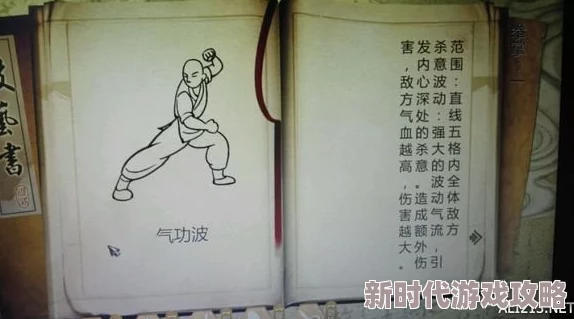 藝書
气功波
范围：直线五格内全体敌方
杀意波动：强大的波动气流，引
发内心深处的杀意。造成额外伤
害，敌方气血越高，伤害越大。
新时代游戏攻略